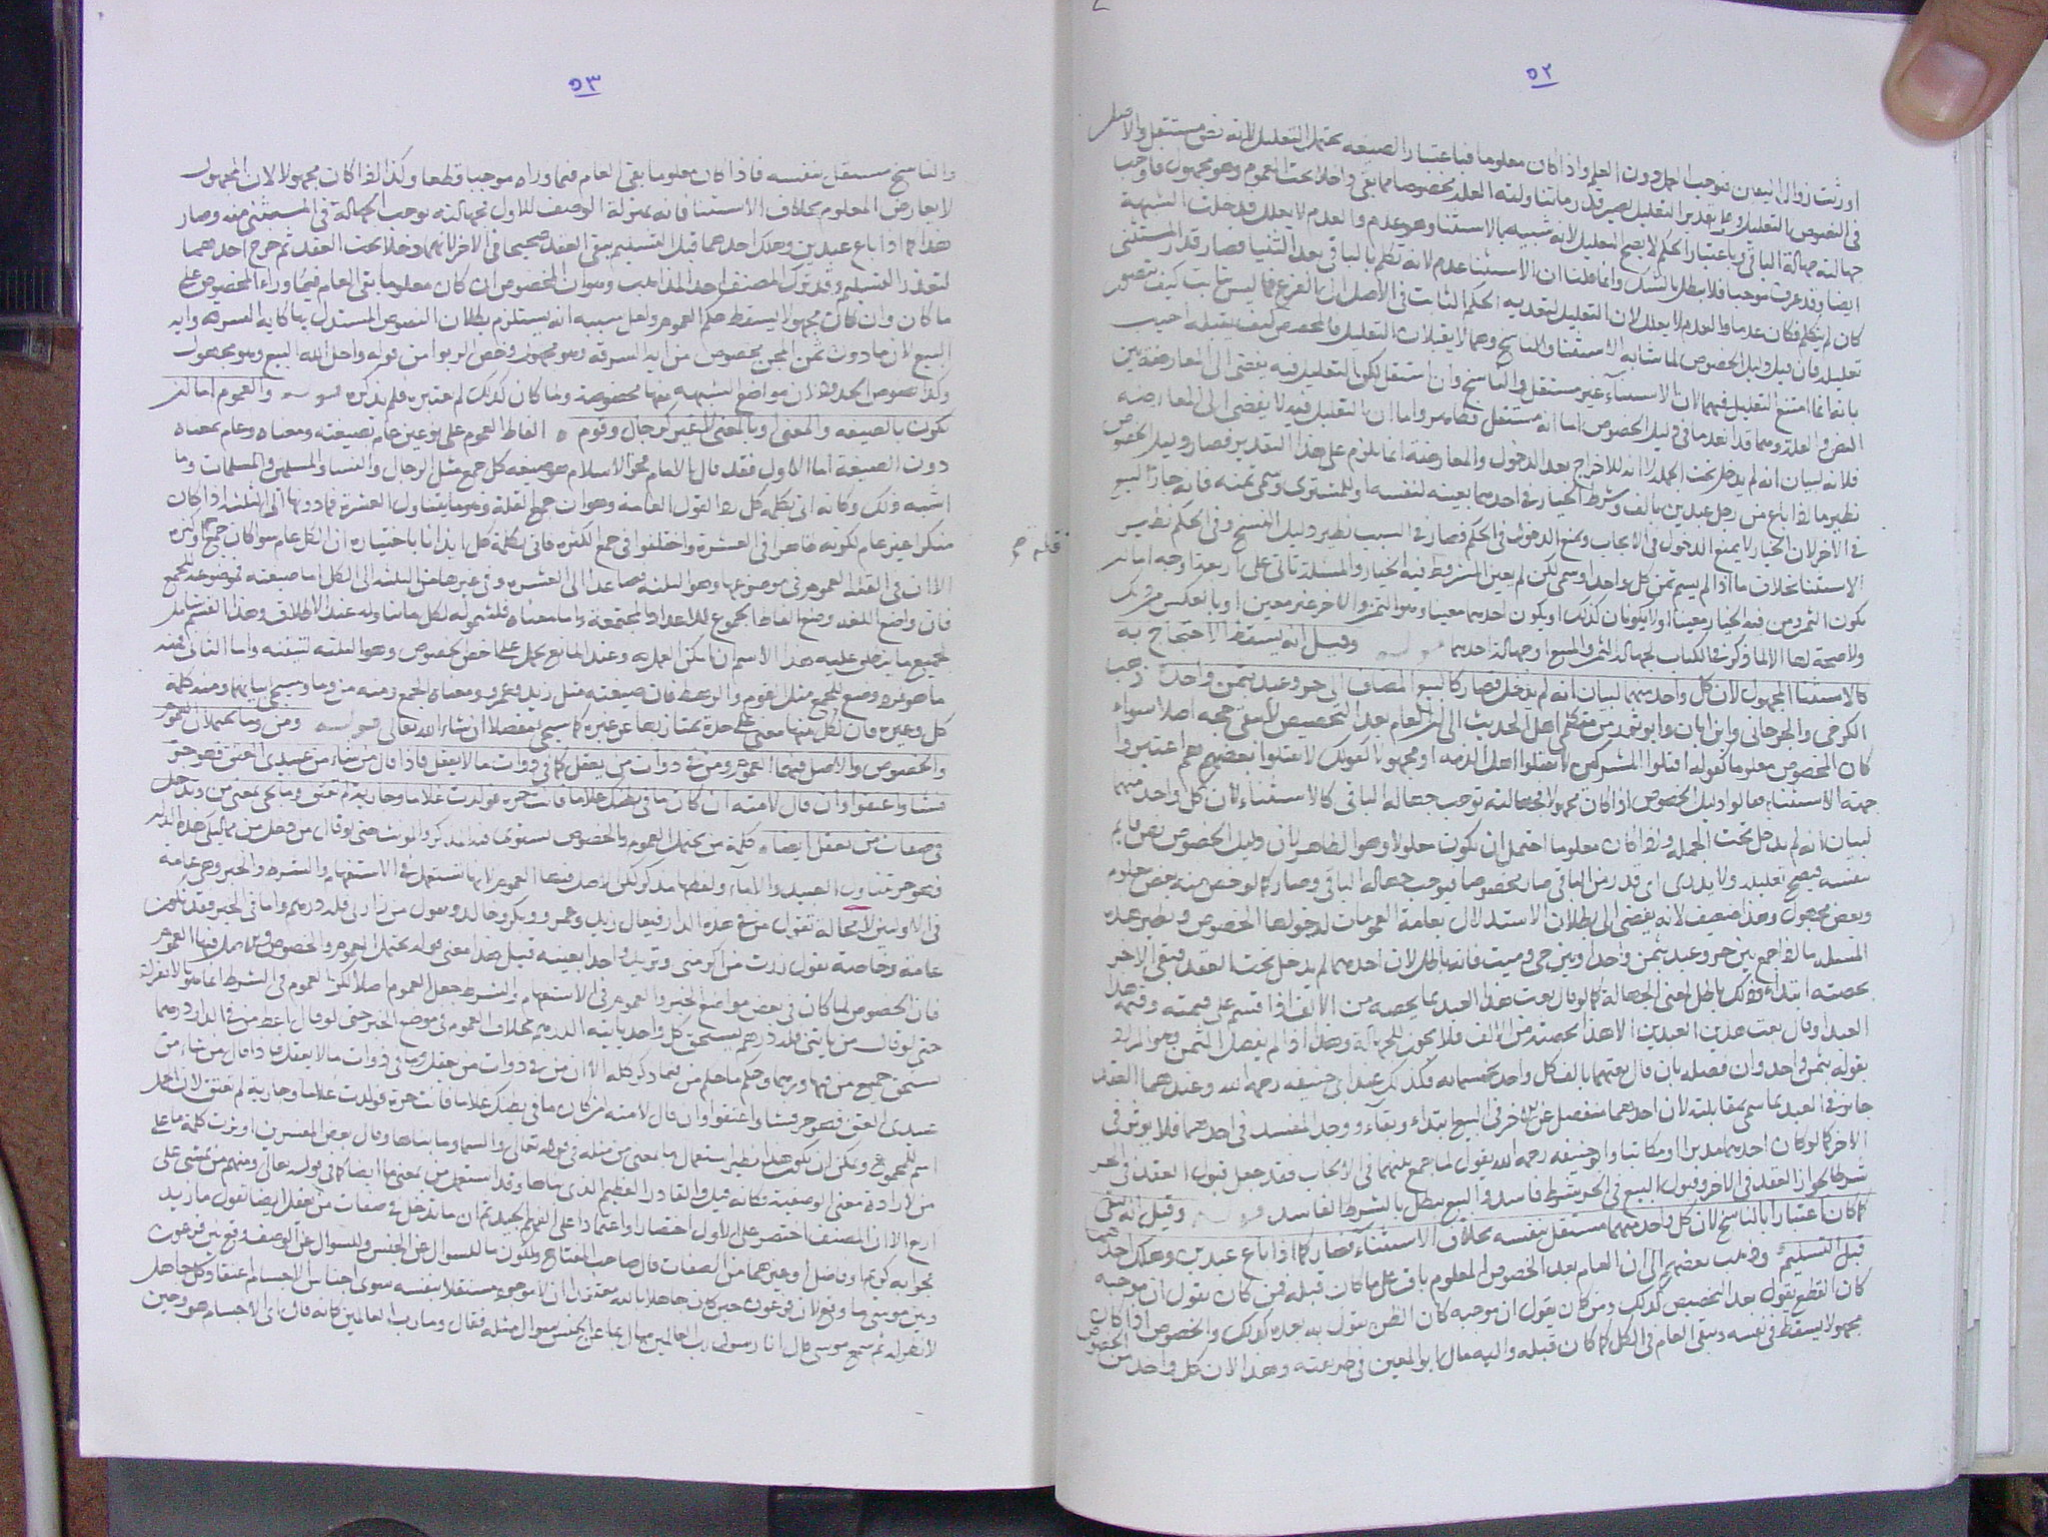 ٥٢
اورثت زوال اليقين فيوجب العمل دون العلم واذا كان معلوما فباعتبار الصيغة يحتمل التعليل لانه نص مستقل والاصل
في النصوص التعليل وعلى تقدير التعليل يصير قدر ما تناولته العلة مخصوصا مما بقي داخلا تحت العموم وهو مجهول فاوجب
جهالته جهالة الباقي وباعتبار الحكم لا يصح التعليل لانه شبيه بالاستثنا وهو عدم والعدم لا يعلل فدخلت الشبهة
ايضا وقد عرف موجبا فلا يبطل بالشك وانما قلنا ان الاستثنا عدم لانه تكلم بالباقي بعد الثنيا فصار قدر المستثنى
كان لم يتكلم فكان عدما والعدم لا يعلل لان التعليل لتعدية الحكم الثابت في الاصل الى الفرع فما ليس بثابت كيف يتصور
تعليله فان قيل دليل الخصوص لما شابه الاستثنا والناسخ وهما لا يقبلان التعليل فالمخصص كيف يقبله اجيب
بانه انما امتنع التعليل فيهما لان الاستثناء غير مستقل والناسخ وان استقل لكن التعليل فيه يفضي الى المعارضة بين
النص والعلة وهما قد انعدما في دليل الخصوص اما انه مستقل فظاهر واما ان التعليل فيه لا يفضي الى المعارضة
فلانه لبيان انه لم يدخل تحت الجملة لا انه للاخراج بعد الدخول والمعارضة انما يلزم على هذا التقدير فصار دليل الخصوص
نظير ما اذا باع من رجل عبدين بالف وشرط الخيار في احدهما بعينه لنفسه او للمشتري وسمى ثمنه فانه جاز البيع
في الاخر لان الخيار لا يمنع الدخول في الايجاب ويمنع الدخول في الحكم فصار في السبب نظير دليل النسخ وفي الحكم نظير
الاستثنا بخلاف ما اذا لم يسم ثمن كل واحد او سمى لكن لم يعين المشروط فيه الخيار والمسئلة تاتي على اربعة اوجه اما ان
يكون الثمن ومن فيه الخيار معينا او لا يكونان كذلك او يكون احدهما معينا وهو الثمن والاخر غير معين او بالعكس
ولا صحة لها الا لما ذكر في الكتاب لجهالة الثمن والمبيع او جهالة احدهما وقيل انه يسقط الاحتجاج به
كالاستثنا المجهول لان كل واحد منهما لبيان انه لم يدخل فصار كالبيع المضاف الى حر وعبد بثمن واحد ذهب
الكرخي والجرجاني وابن ابان وابو ثور من متكلمي اهل الحديث الى ان العام بعد التخصيص لا يبقى حجة اصلا سواء
كان المخصوص معلوما كقوله اقتلوا المشركين لا تقتلوا اهل الذمة او مجهولا كقولك لا تقتلوا بعضهم هم اعتبروا
جهة الاستثناء فقالوا دليل الخصوص اذا كان مجهولا فجهالته توجب جهالة الباقي كالاستثناء لان كل واحد منهما
لبيان انه لم يدخل تحت الجملة واذا كان معلوما احتمل ان يكون معلولا وهو الظاهر لان دليل الخصوص نص قايم
بنفسه فيصح تعليله ولا يدرى اي قدر من الباقي صار مخصوصا فيوجب جهالة الباقي وصار كما لو خص منه بعض معلوم
وبعض مجهول وهذا ضعيف لانه يفضي الى بطلان الاستدلال بعامة العمومات لدخولها الخصوص ونظير هذه
المسئلة ما اذا جمع بين حر وعبد بثمن واحد او بين حي وميت فانه باطل لان احدهما لم يدخل تحت العقد فبقي الاخر
بحصته ابتداء وذلك باطل لمعنى الجهالة كما لو قال بعت هذا العبد بما يخصه من الالف اذا قسم على قيمته وقيمة هذا
العبد او قال بعت هذين العبدين الا هذا بحصته من الالف فلا يجوز للجهالة وهذا اذا لم يفصل الثمن وهو المراد
بقوله بثمن واحد وان فصله بان قال بعتهما بالف كل واحد بخمسماية فكذلك عند ابي حنيفة رحمه الله وعندهما العقد
جايز في العبد بما سمي بمقابلته لان احدهما منفصل عن الاخر في البيع ابتداء وبقاء ووجد المفسد في احدهما فلا يوثر في
الاخر كما لو كان احدهما مدبرا او مكاتبا وابو حنيفة رحمه الله يقول لما جمع بينهما في الايجاب فقد جعل قبول العقد في الحر
شرطا لجواز العقد في الاخر وقبول البيع في الحر شرط فاسد والبيع يبطل بالشرط الفاسد وقيل انه يبقى
كما كان اعتبارا بالناسخ لان كل واحد منهما مستقل بنفسه بخلاف الاستثناء فصار كما اذا باع عبدين وهلك احدهما
قبل التسليم وذهب بعضهم الى ان العام بعد الخصوص المعلوم باق على ما كان قبله فمن كان يقول ان موجبه
كان القطع يقول بعد التخصيص كذلك ومن كان يقول ان موجبه كان الظن يقول به بعده كذلك والخصوص اذا كان
مجهولا يسقط في نفسه ويبقى العام في الكل كما كان قبله واليه مال ابو المعين في طريقته وهذا لان كل واحد من الخصوص
٥٣
والناسخ مستقل بنفسه فاذا كان معلوما بقي العام فيما وراه موجبا قطعا وكذا اذا كان مجهولا لان المجهول
لا يعارض المعلوم بخلاف الاستثنا فانه بمنزلة الوصف للاول فجهالته توجب الجهالة في المستثنى منه وصار
هذا كما اذا باع عبدين وهلك احدهما قبل التسليم يبقى العقد صحيحا في الاخر لانهما دخلا تحت العقد ثم خرج احدهما
لتعذر التسليم وقد ترك المصنف احد المذاهب وهو ان المخصوص ان كان معلوما بقي العام فيما وراء المخصوص على
ما كان وان كان مجهولا يسقط حكم العموم ولعل سببه انه يستلزم بطلان النصوص المستدل بها كاية السرقة واية
البيع لان ما دون ثمن المجن مخصوص من اية السرقة وهو مجهول وخص الربوا من قوله واحل الله البيع وهو مجهول
وكذا نصوص الحدود لان مواضع الشبهة منها مخصوصة وما كان كذلك لم يعتبره فلم يذكره قوله والعموم اما ان
يكون بالصيغة والمعنى او بالمعنى لا غير كرجال وقوم الفاظ العموم على نوعين عام بصيغته ومعناه وعام بمعناه
دون الصيغة اما الاول فقد قال الامام فخر الاسلام هو صيغة كل جمع مثل الرجال والنسا والمسلمين والمسلمات وما
اشبه ذلك وكانه اتى بكلمة كل ردا لقول العامة وهو ان جمع القلة وهو ما يتناول العشرة فما دونها الى الثلثة اذا كان
منكرا غير عام لكونه ظاهرا في العشرة واختلفوا في جمع الكثرة فاتى بكلمة كل ايذانا باختياره ان الكل عام سوا كان جمع قلة او كثرة
الا ان في القلة العموم في موضوعها وهو الثلثة فصاعدا الى العشرة وفي غيرها من الثلثة الى الكل اما صيغته فموضوعة للجمع
فان واضع اللغة وضع الفاظ الجموع للاعداد المجتمعة واما معناه فلشموله لكل ما تناوله عند الاطلاق وهذا القسم شامل
لجميع ما ينطلق عليه هذا الاسم ان امكن العمل به وعند المانع يحمل على اخص الخصوص وهو الثلثة لتيقنه واما الثاني فمنه
ما هو فرد وضع للجمع مثل القوم والرهط فان صيغته مثل زيد وعمرو ومعناه الجمع ومنه من وما وسيجي بيانهما ومنه كلمة
كل وغيره فان لكل منها معنى على حدة يمتاز بها عن غيره كما سيجي مفصلا ان شاء الله تعالى قوله ومن وما يحتملان العموم
والخصوص والاصل فيهما العموم ومن في ذوات من يعقل كما في ذوات ما لا يعقل فاذا قال من شاء من عبيدي العتق فهو حر
فشاؤا عتقوا وان قال لامته ان كان ما في بطنك غلاما فانت حرة فولدت غلاما وجارية لم تعتق وما يجي بمعنى من وتدخل
في صفات من يعقل ايضا كلمة من يحتمل العموم والخصوص يستوي فيه المذكر والمونث حتى لو قال من دخل من مماليكي هذه الدار
فهو حر تناول العبيد والاماء ولفظها مذكر لكن الاصل فيها العموم لانها تستعمل في الاستفهام والشرط والخبر وهي عامة
في الاولين لا محالة تقول من في هذه الدار فيقال زيد وعمرو وبكر وخالد ويقول من زارني فله درهم واما في الخبر فقد تكون
عامة وخاصة تقول زرت من اكرمني وتريد واحدا بعينه قيل هذا معنى قوله يحتمل العموم والخصوص
فان الخصوص لما كان في بعض مواضع الخبر والعموم في الاستفهام والشرط جعل العموم اصلا لكن العموم في الشرط انما هو بالانفراد
حتى لو قال من ياتيني فله درهم يستحق كل واحد ياتيه الدرهم بخلاف العموم في موضع الخبر حتى لو قال اعط من في الدار درهما
يستحق جميع من فيها درهما وحكم ما حكم من فيما ذكر كله الا ان من في ذوات من يعقل وما في ذوات ما لا يعقل فاذا قال من شاء من
عبيدي العتق فهو حر فشاؤا عتقوا وان قال لامته ان كان ما في بطنك غلاما فانت حرة فولدت غلاما وجارية لم تعتق لان الحمل
اسم للمجموع ويمكن ان يكون هذا نظير استعمال ما بمعنى من مثله في قوله تعالى والسما وما بناها وقال بعض المفسرين اوثرت كلمة ما على
من لارادة معنى الوصفية فكانه قيل والقادر العظيم الذي بناها وقد استعمل من بمعنى ما ايضا كما في قوله تعالى ومنهم من يمشي على
اربع الا ان المصنف اختصر على الاول اختصارا واعتمادا على الفهم الجيد ثم ان ما تدخل في صفات من يعقل ايضا تقول ما زيد
بجوابه كريم او فاضل او غيرهما من الصفات قال صاحب المفتاح ولكون ما للسوال عن الجنس وللسوال عن الوصف وقع بين فرعون
وبين موسى ما وقع لان فرعون حين كان جاهلا بالله معتقدا ان لا موجود مستقلا بنفسه سوى اجناس الاجسام اعتقاد كل جاهل
لا نظر له ثم سمع موسى قال انا رسول رب العالمين سال بما عن الجنس سوال مثله فقال وما رب العالمين كانه قال اي الاجسام هو وحين